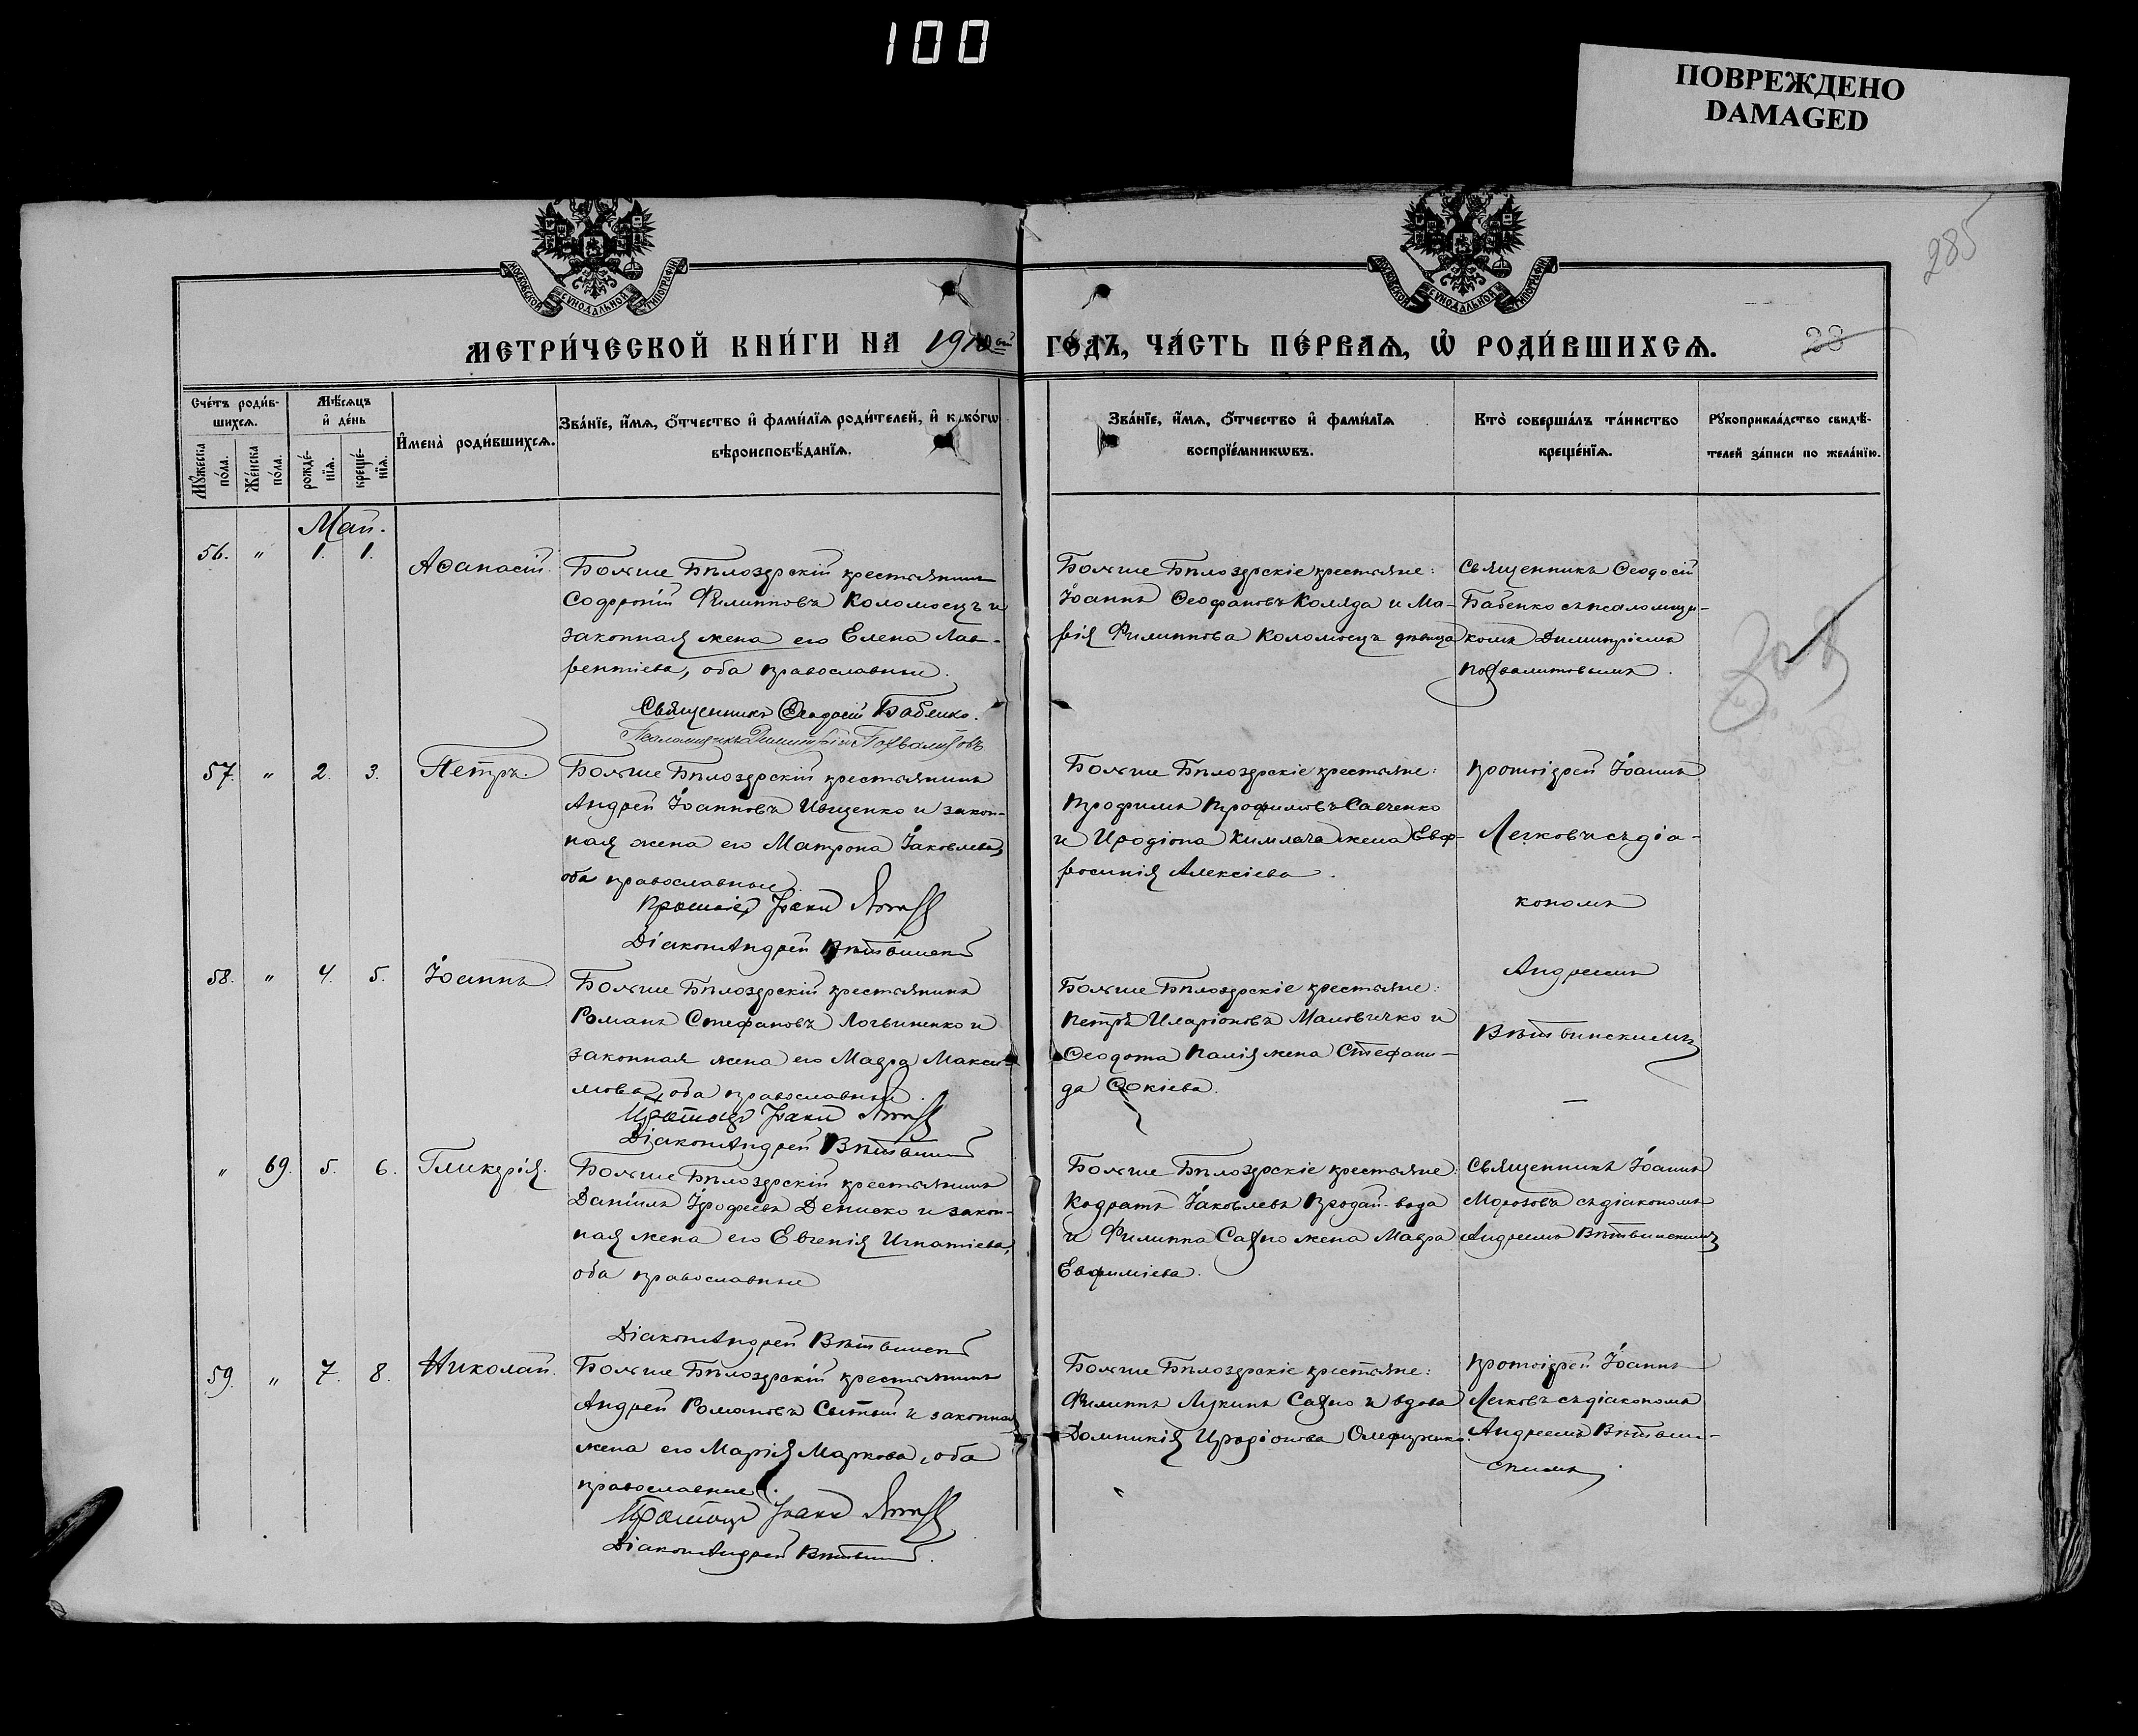 100
ПОВРЕЖДЕНО
DAMAGED
285
МОСКОВСКОЙ СѴНОДАЛЬНОЙ ТИПОГРАФІИ
МОСКОВСКОЙ СѴНОДАЛЬНОЙ ТИПОГРАФІИ
МЕТРИ́ЧЕСКОЙ КНИ́ГИ НА 1910ый ГО́ДЪ, ЧА́СТЬ ПЕ́РВАѦ, Ѽ РОДИ́ВШИХСѦ.
28
Сче́тъ роди́в-
шихсѧ.
Мѣ́сѧцъ
и҆ де́нь
Мꙋ́жеска по́ла.
Же́нска по́ла.
рожде́-нїѧ.
креще́-нїѧ.
И҆мена̀ роди́вшихсѧ.
Зва́нїе, и҆́мѧ, ѻ҆́тчество и҆ фами́лїѧ роди́телей, и҆ како́гѡ
вѣроисповѣ́данїѧ.
Зва́нїе, и҆́мѧ, ѻ҆́тчество и҆ фами́лїѧ
воспрїе́мникѡвъ.
Кто̀ соверша́лъ та́инство
креще́нїѧ.
Рꙋкоприкла́дство свидѣ́-
телей за́писи по жела́нїю.
Май.
56. " 1. 1. Аѳанасій.
Больше Бѣлозерскій крестьянинъ
Софроній Филипповъ Коломоецъ и
законная жена его Елена Лав-
рентіева, оба православные.
Священникъ Ѳеодосій Бабенко.
Псаломщикъ Димитрій Похвалитовъ
Больше Бѣлозерскіе крестьяне:
Іоаннъ Ѳеофановъ Коляда и Ма-
рія Филиппова Коломоецъ дѣвица
Священникъ Ѳеодосій
Бабенко съ псаломщи-
комъ Димитріемъ
Похвалитовымъ.
57. " 2. 3. Петръ.
Больше Бѣлозерскій крестьянинъ
Андрей Іоанновъ Ивщенко и закон-
ная жена его Матрона Іаковлева,
оба православные.
Протоіер Іоанн
Діаконъ Андрей Вѣтвинскій
Больше Бѣлозерскіе крестьяне:
Трофимъ Трофимовъ Савченко
и Иродіона жена Евф-
росинія Алексіева.
Протоіерей Іоаннъ
Легковъ съ діа-
кономъ
Андреемъ
Вѣтвинскимъ
58. " 4. 5. Іоаннъ.
Больше Бѣлозерскій крестьянинъ
Романъ Стефановъ Логвиненко и
законная жена его Мавра Макси-
мова, оба православные.
Протоіер Іоанн
Діаконъ Андрей Вѣтвинскій
Больше Бѣлозерскіе крестьяне:
Петръ Иларіоновъ Маловичко и
Ѳеодота Палія жена Стефани-
да
" 69. 5. 6. Гликерія.
Больше Бѣлозерскій крестьянинъ
Даніилъ Іерофеевъ Дениско и закон-
ная жена его Евгенія Игнатіева,
оба православные
Діаконъ Андрей Вѣтвинскій
Больше Бѣлозерскіе крестьяне:
Кодратъ Іаковлевъ Продай-вода
и Филиппа Сахно жена Мавра
Евфиміева.
Священникъ Іоаннъ
Морозовъ съ діакономъ
Андреемъ Вѣтвинскимъ
59. " 7. 8. Николай.
Больше Бѣлозерскій крестьянинъ
Андрей Романовъ Сытый и законная
жена его Марія Маркова, оба
православные.
Протоіер Іоанн
Діаконъ Андрей Вѣтвинскій
Больше Бѣлозерскіе крестьяне:
Филиппъ Лукинъ Сахно и вдова
Домникія Иродіонова
Протоіерей Іоаннъ
Легковъ съ діакономъ
Андреемъ Вѣтвин-
скимъ